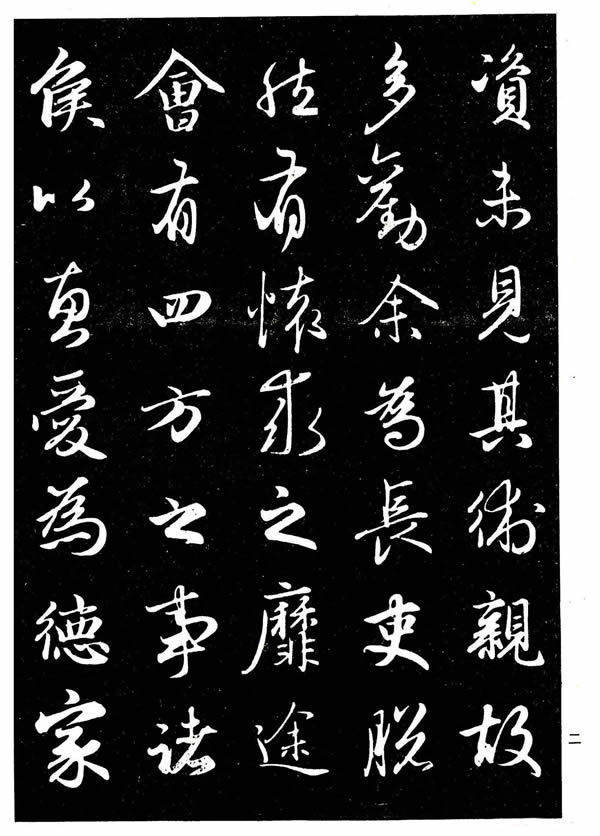 資未見其術親故
多勸余為長吏脫
然有懷求之靡途
會有四方之事諸
侯以惠愛為德家
二